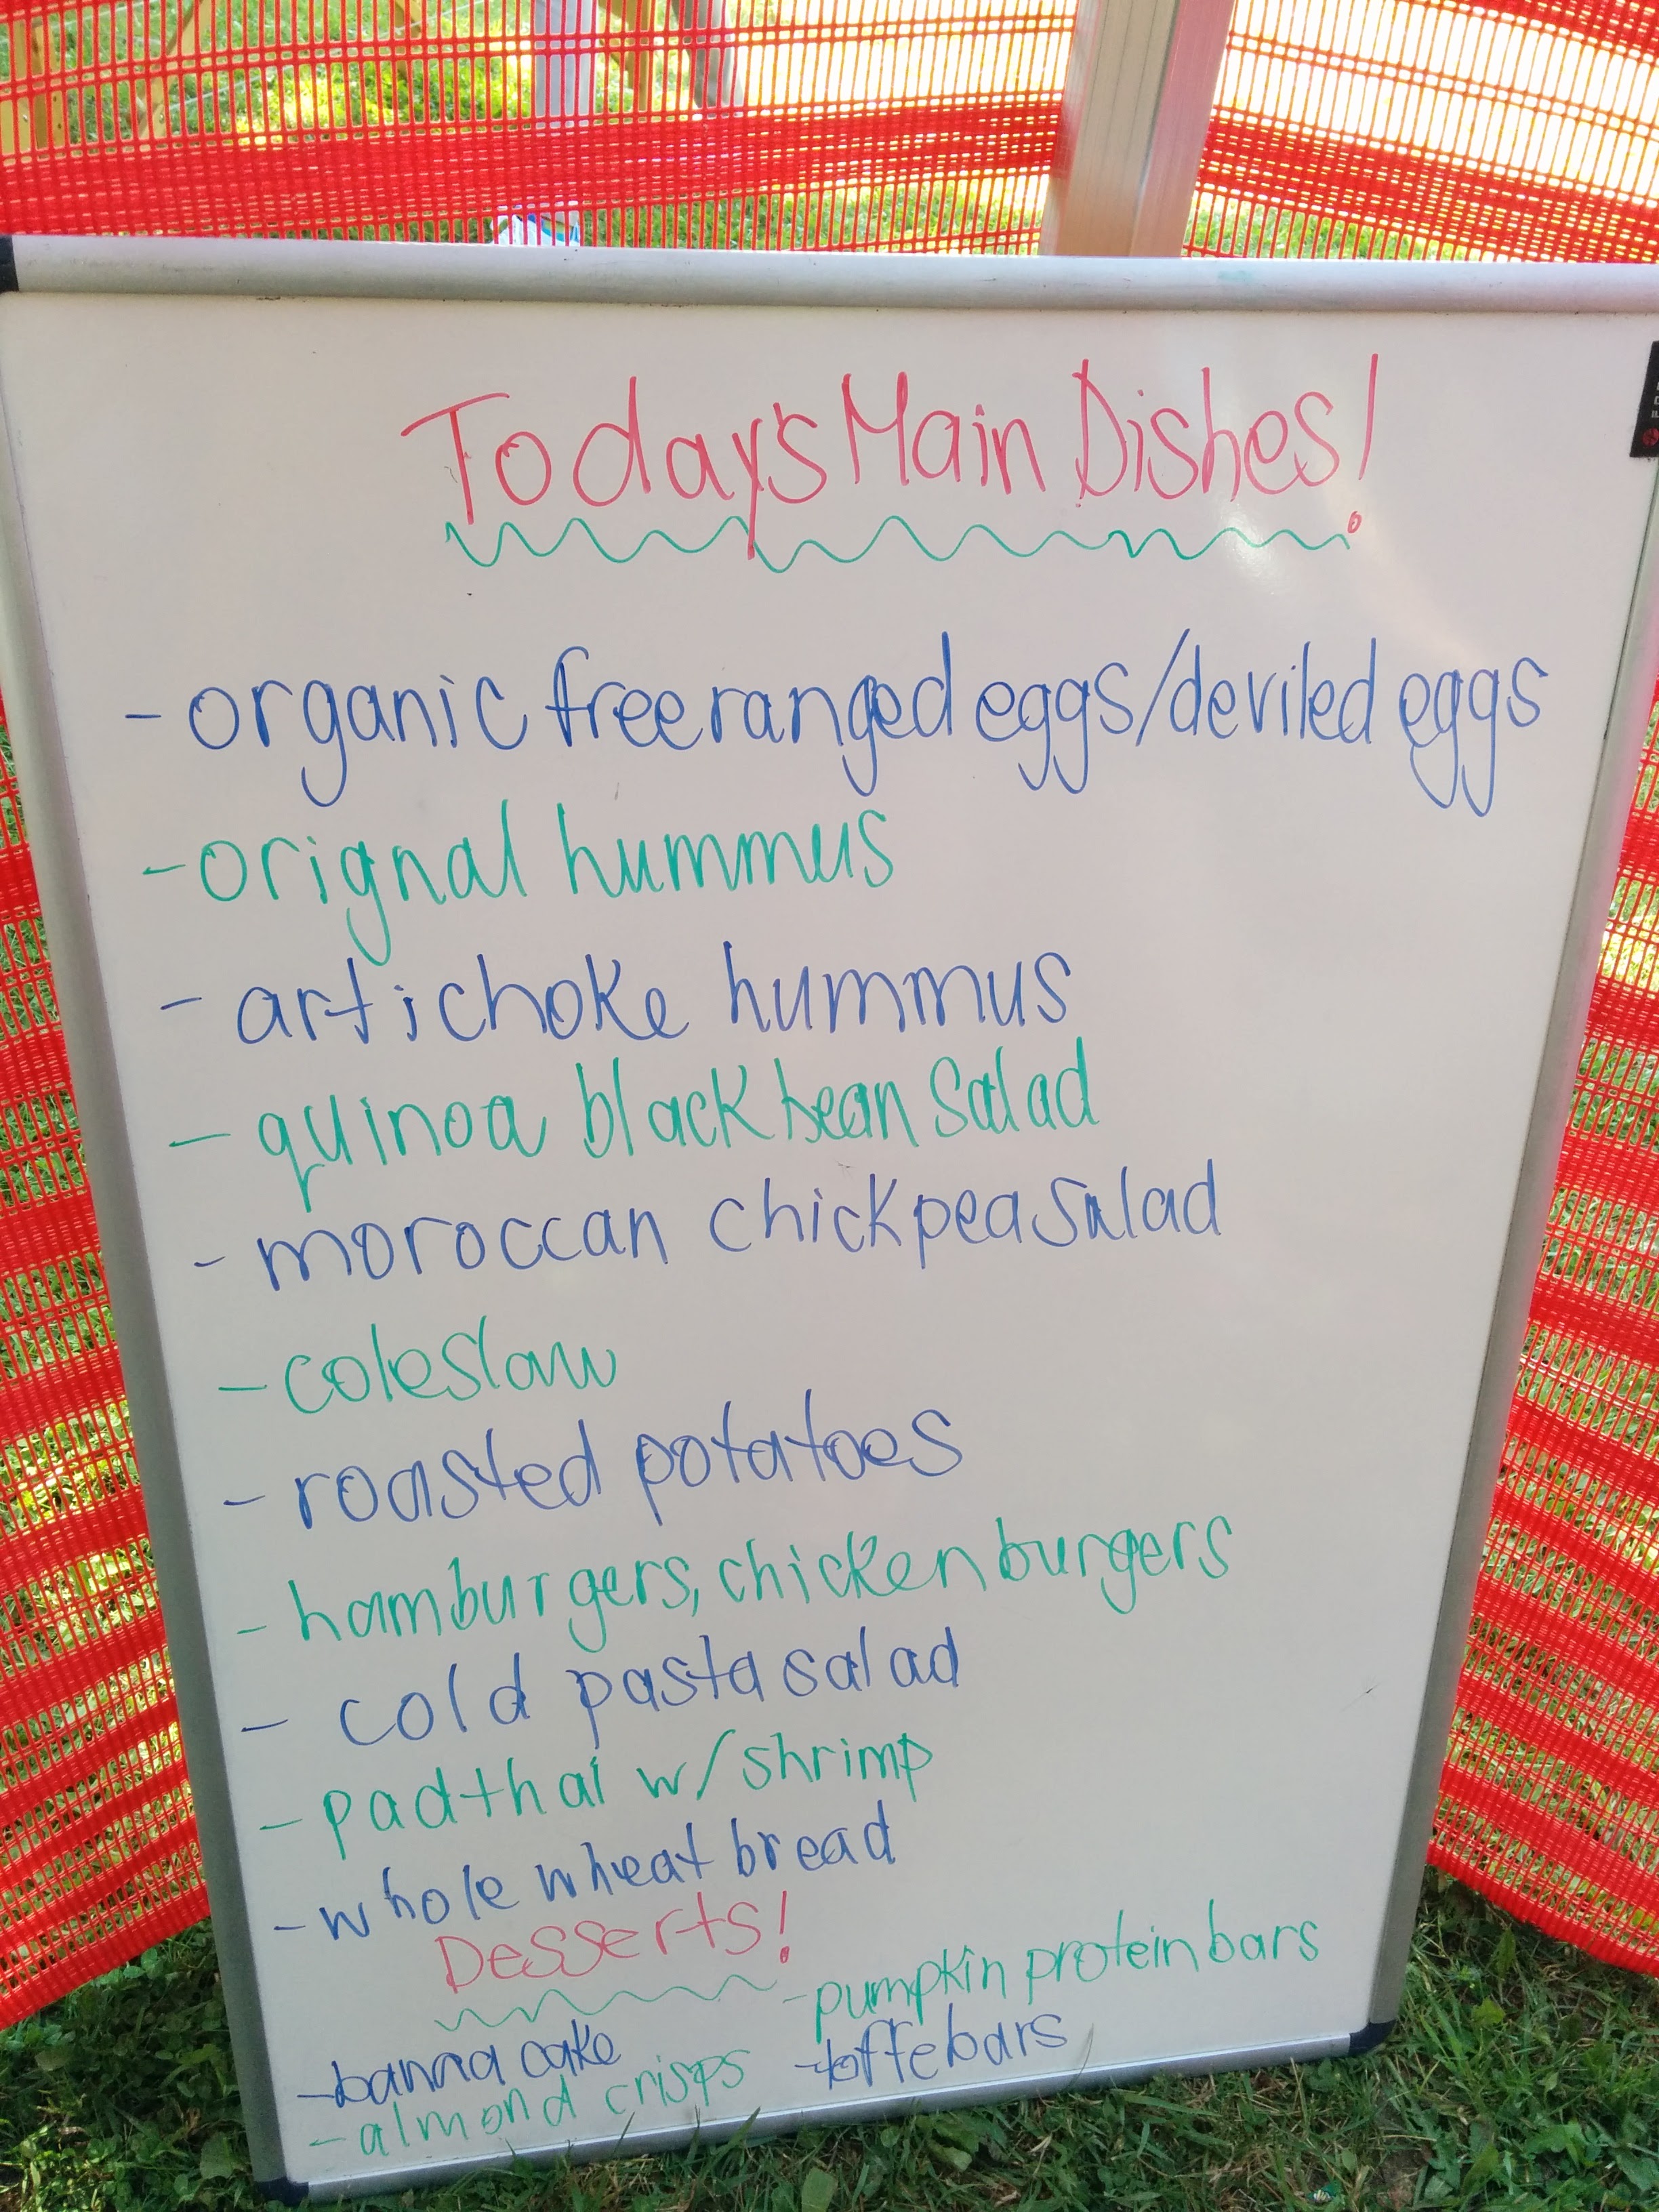 Today's Main Dishes!
- organic free ranged eggs/deviled eggs
- orignal hummus
- artichoke hummus
- quinoa black bean salad
- moroccan chickpea salad
- coleslaw
- roasted potatoes
- hamburgers, chicken burgers
- cold pasta salad
- pad thai w/ shrimp
- whole wheat bread
Desserts!
- banna cake
- almond crisps
- pumpkin protein bars
- toffe bars